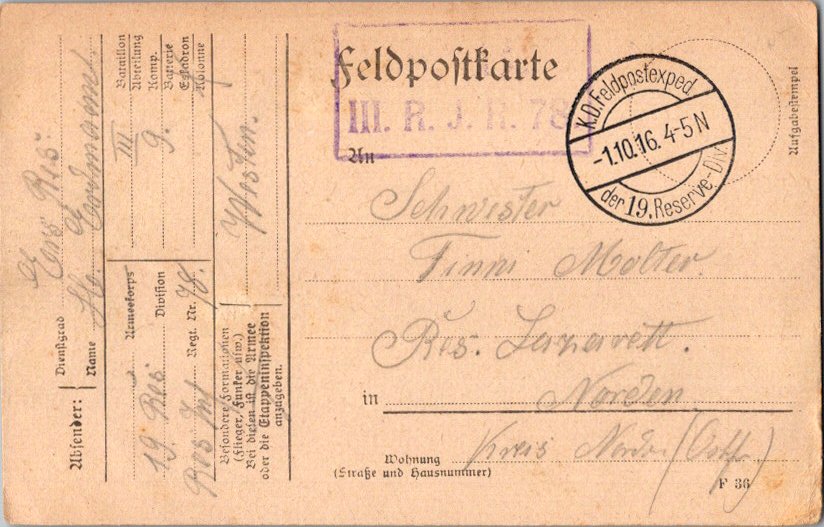 Feldpostkarte
III. R. J. R. 78
K.D. Feldpostexped.
-1.10.16. 4-5 N
der 19. Reserve-Div.
Aufgabestempel
An
Schwester
Finni Molter.
Res. Lazarett.
in Norden
Kreis Norden (Ostfr.)
Wohnung
(Straße und Hausnummer)
F 36
Absender:
Dienstgrad Ers Res.
Name
Bataillon III
Abteilung
Komp. 9.
Batterie
Eskadron
Kolonne
Armeekorps
19. Res Division
Res Inf Regt. Nr. 78.
Westen.
Besondere Formationen
(Flieger, Funker usw.)
Bei diesen ist die Armee
oder die Etappeninspektion
anzugeben.